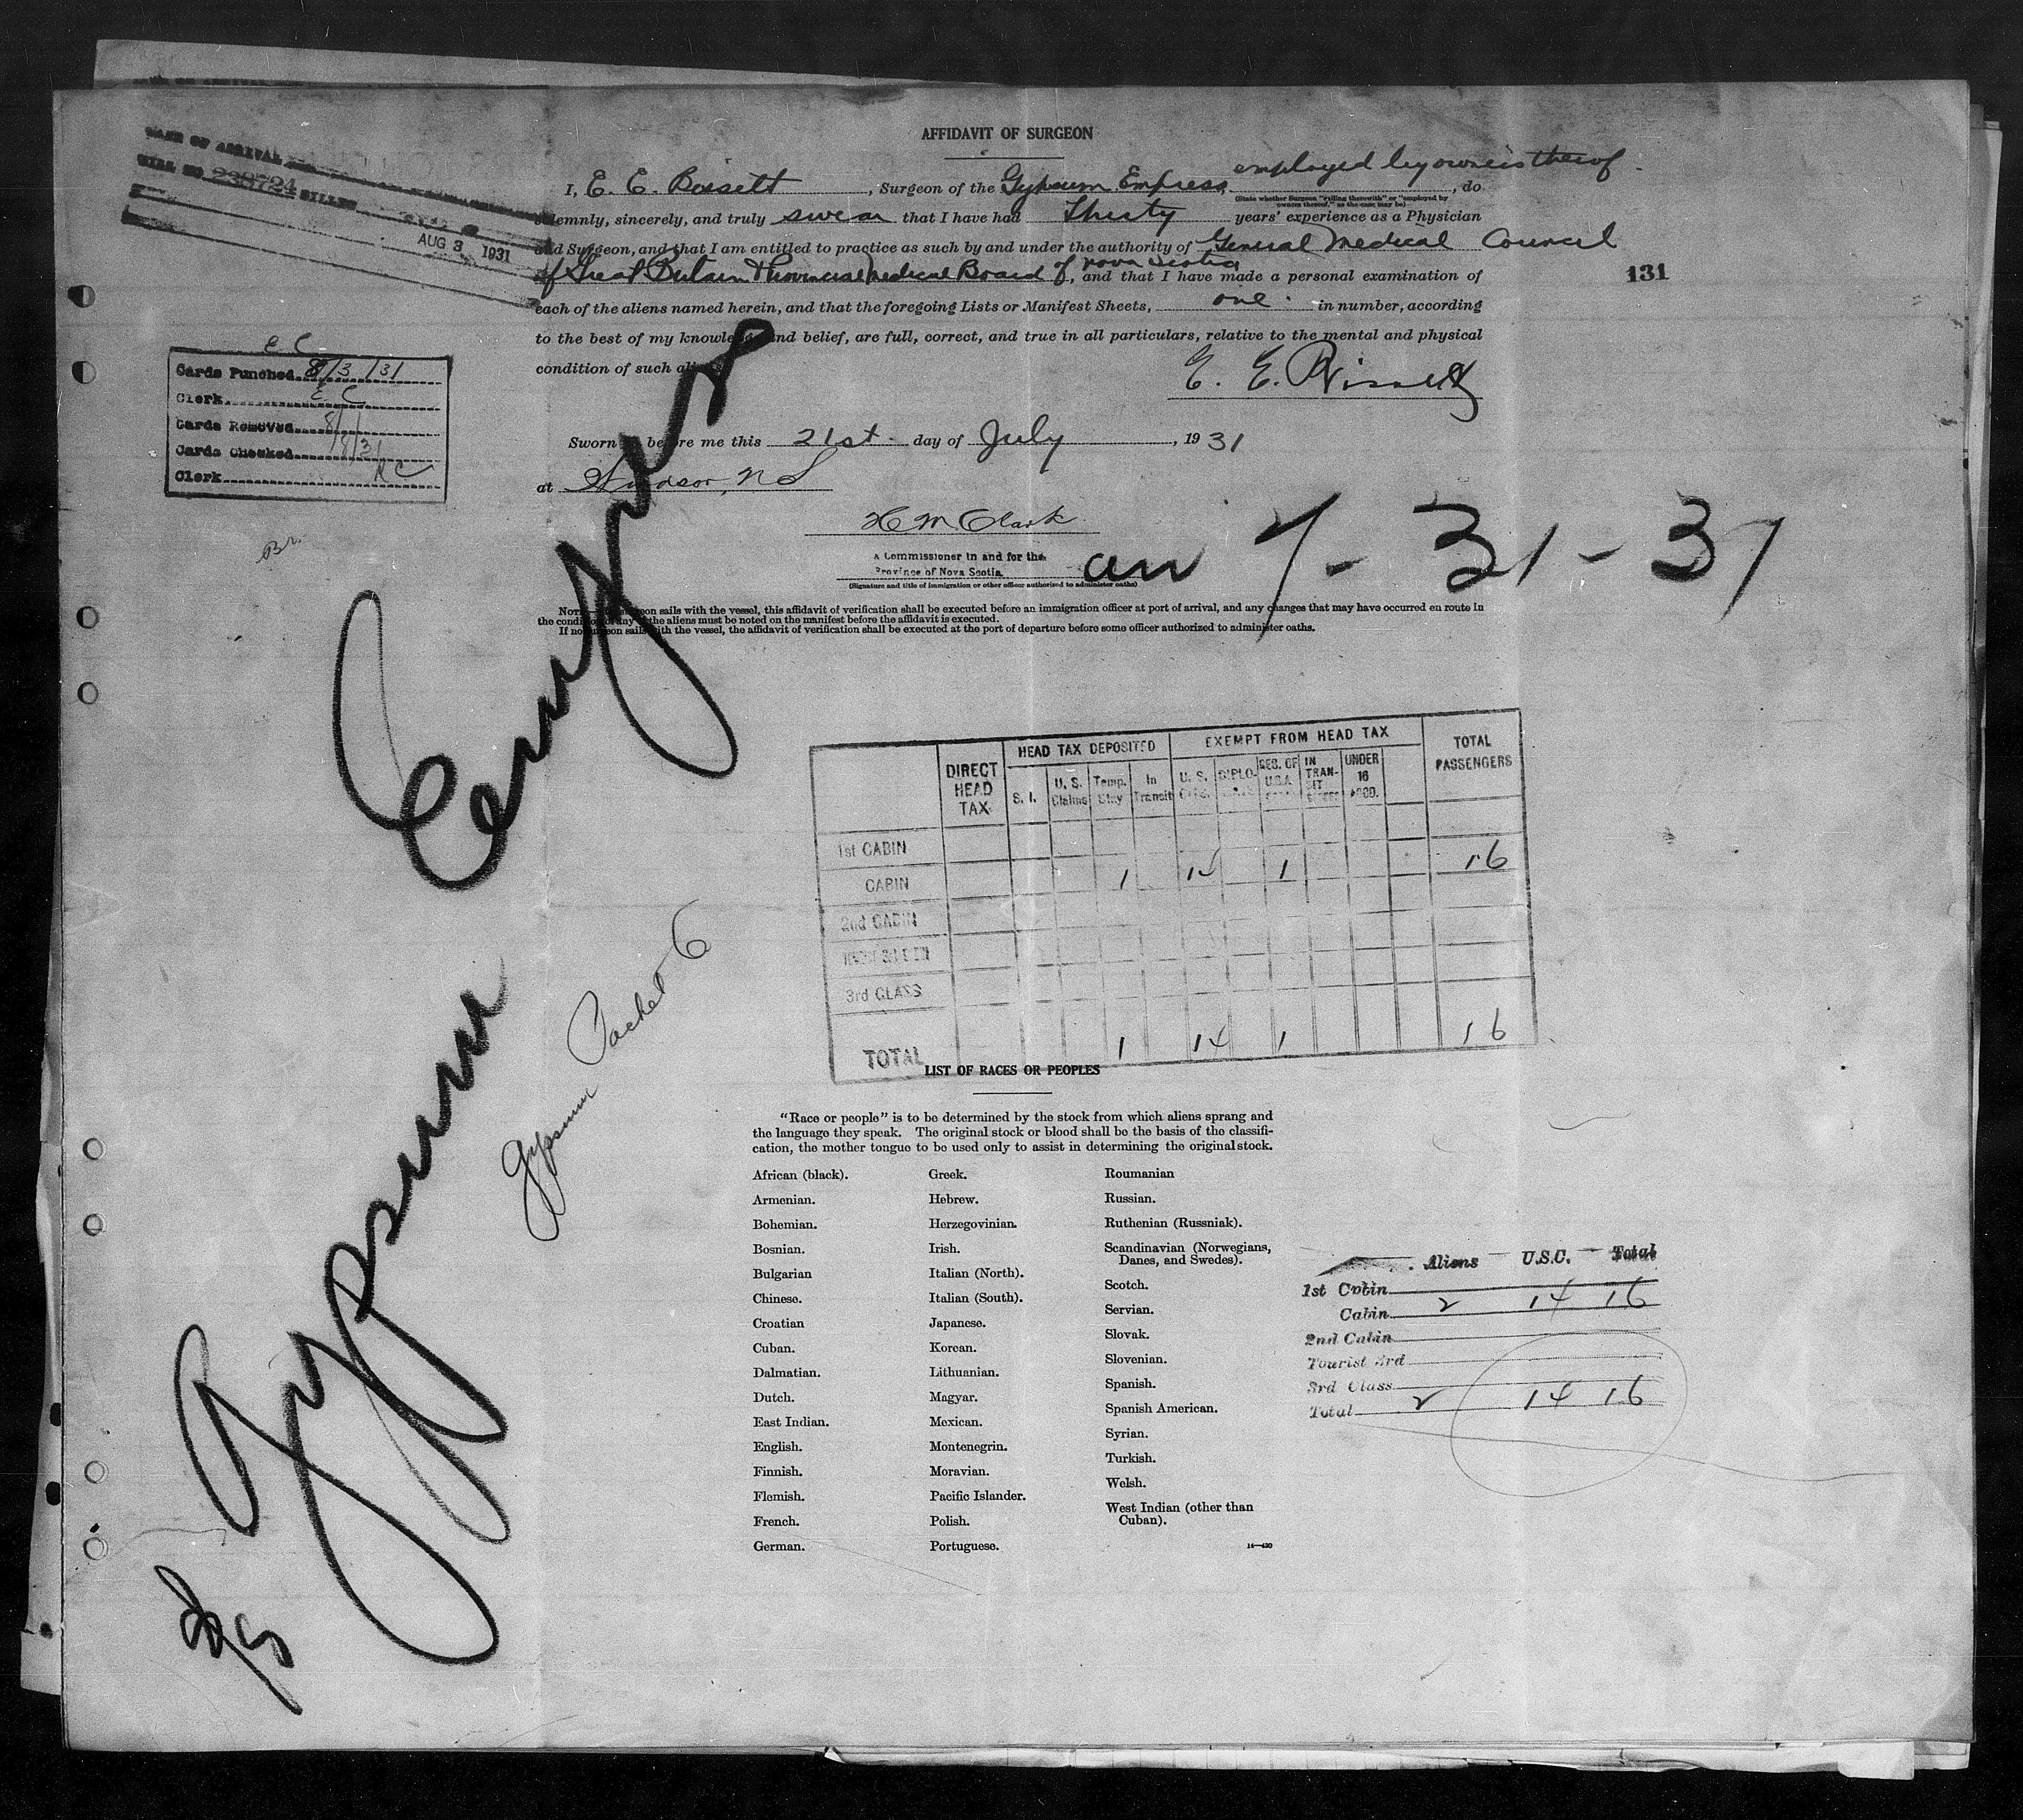 AFFIDAVIT OF SURGEON
I, E. E. Bissett, Surgeon of the Gypsum Empress, employed by owners thereof, do
(State whether Surgeon "sailing therewith" or "employed by owners thereof," as the case may be)
solemnly, sincerely, and truly swear that I have had Thirty years' experience as a Physician
and Surgeon, and that I am entitled to practice as such by and under the authority of General Medical Council
of Great Britain & Provincial Medical Board of Nova Scotia, and that I have made a personal examination of
each of the aliens named herein, and that the foregoing Lists or Manifest Sheets, one in number, according
to the best of my knowledge and belief, are full, correct, and true in all particulars, relative to the mental and physical
condition of such aliens.
E. E. Bissett
Sworn to before me this 21st day of July, 1931
at Windsor, NS
H M Clark
A Commissioner in and for the
Province of Nova Scotia
(Signature and title of immigration or other officer authorized to administer oaths)
NOTE.—If surgeon sails with the vessel, this affidavit of verification shall be executed before an immigration officer at port of arrival, and any changes that may have occurred en route in
the condition of any of the aliens must be noted on the manifest before the affidavit is executed.
If no surgeon sails with the vessel, the affidavit of verification shall be executed at the port of departure before some officer authorized to administer oaths.
131
OF ARRIVAL
BILL NO 238724 BILLED
AUG 3 1931
E C
Cards Punched 8/3/31
Clerk E C
Cards Removed
Cards Checked
Clerk
Br.
arr 7-31-31
Gypsum Empress
Gypsum Packet 6
DIRECT HEAD TAX
HEAD TAX DEPOSITED
EXEMPT FROM HEAD TAX
TOTAL PASSENGERS
S. I.
U. S. Claims
Temp. Stay
In Transit
U. S. CITZ.
DIPLO-
RES. OF U.S.A.
IN TRAN-SIT
UNDER 16 ACCD.
1st CABIN
CABIN 1 14 1 16
2nd CABIN
3rd CLASS
TOTAL 1 14 1 16
LIST OF RACES OR PEOPLES
"Race or people" is to be determined by the stock from which aliens sprang and
the language they speak. The original stock or blood shall be the basis of the classifi-
cation, the mother tongue to be used only to assist in determining the original stock.
African (black).
Armenian.
Bohemian.
Bosnian.
Bulgarian
Chinese.
Croatian
Cuban.
Dalmatian.
Dutch.
East Indian.
English.
Finnish.
Flemish.
French.
German.
Greek.
Hebrew.
Herzegovinian.
Irish.
Italian (North).
Italian (South).
Japanese.
Korean.
Lithuanian.
Magyar.
Mexican.
Montenegrin.
Moravian.
Pacific Islander.
Polish.
Portuguese.
Roumanian
Russian.
Ruthenian (Russniak).
Scandinavian (Norwegians,
Danes, and Swedes).
Scotch.
Servian.
Slovak.
Slovenian.
Spanish.
Spanish American.
Syrian.
Turkish.
Welsh.
West Indian (other than
Cuban).
14—430
Aliens U.S.C. Total
1st Cabin
Cabin 2 14 16
2nd Cabin
Tourist 3rd
3rd Class
Total 2 14 16